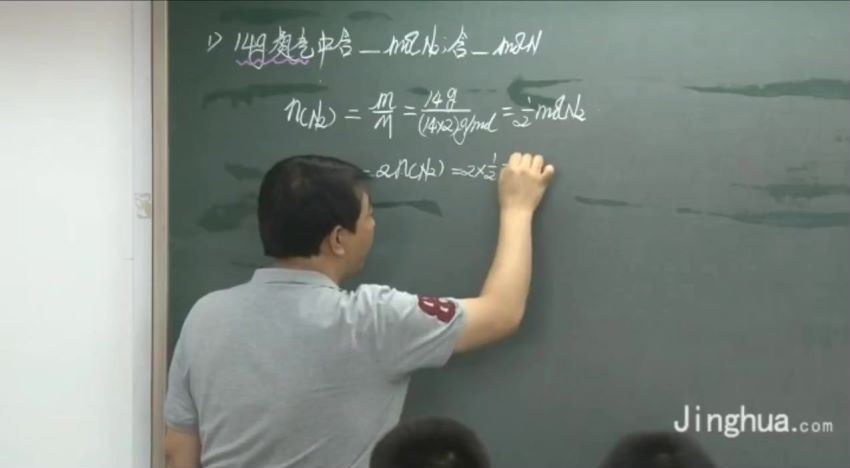 1) 14g氮气中含_molN₂;含_molN
n(N₂) = m/M = 14g/(14×2)g/mol = 1/2 molN₂
= 2n(N₂) = 2×1/2
Jinghua.com